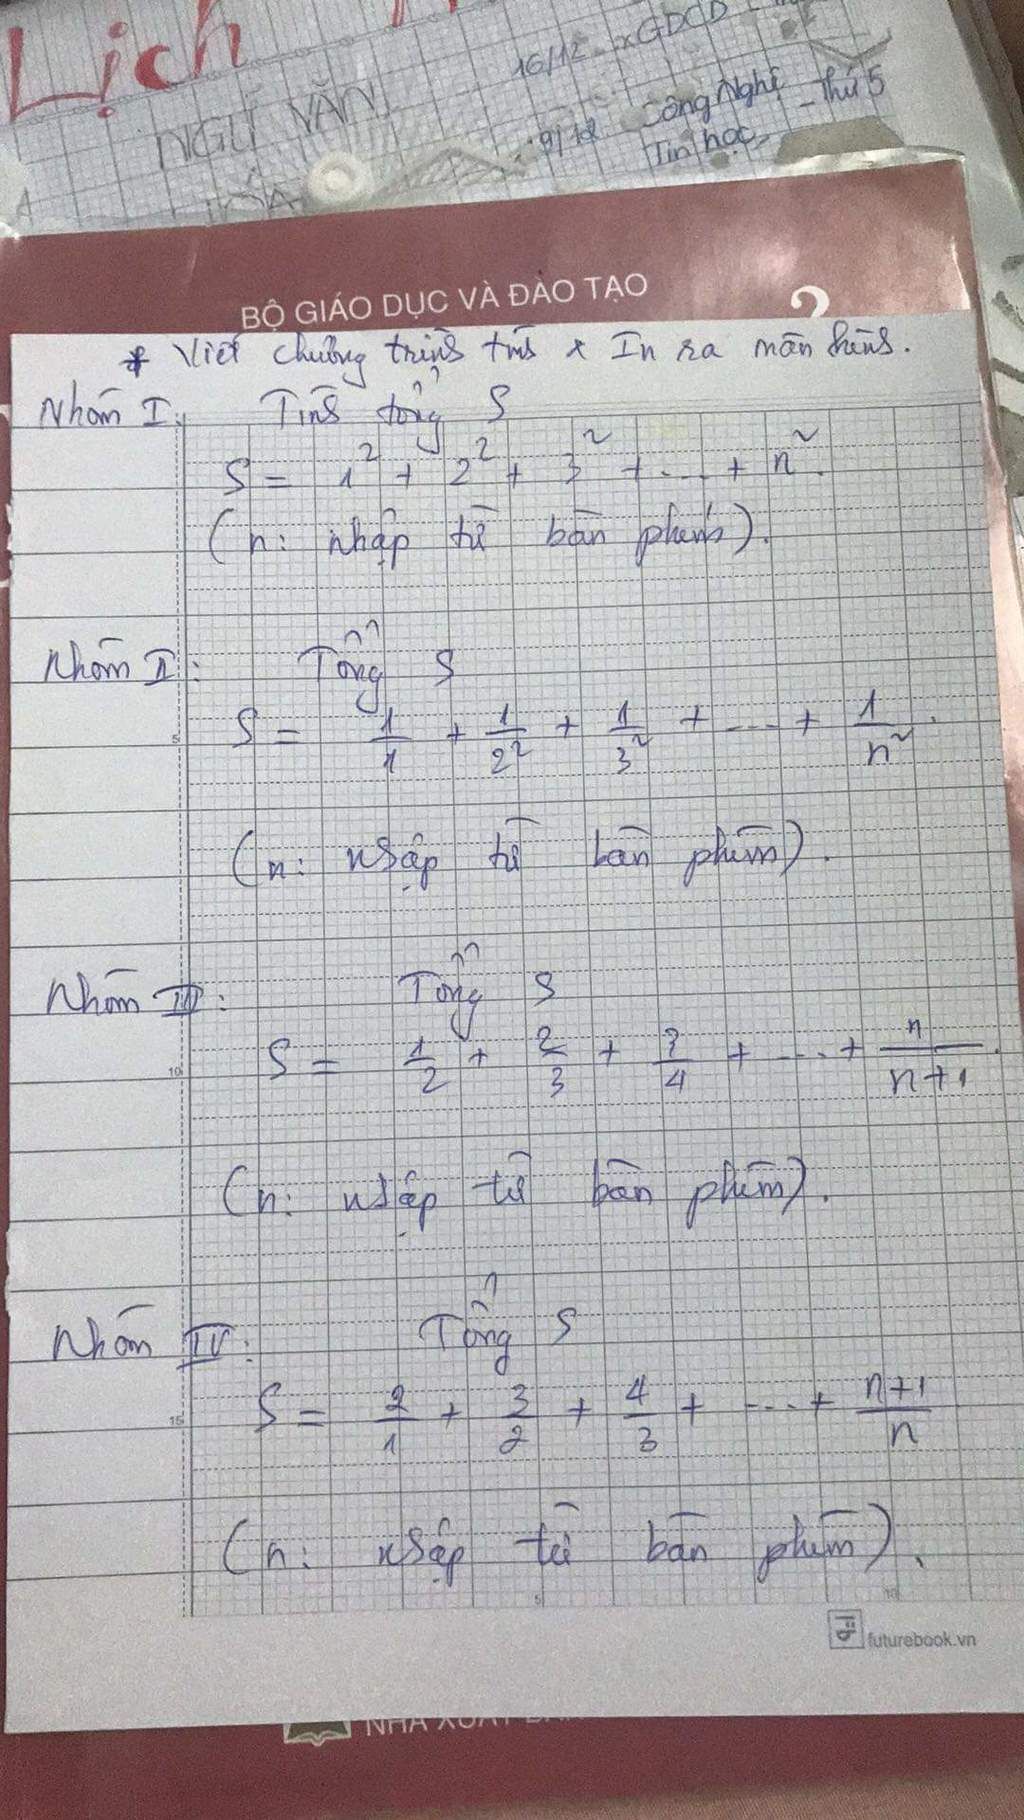 Lịch
NGỮ VĂN
16/12 GDCD
9/12 Công Nghệ - Thứ 5
Tin học
BỘ GIÁO DỤC VÀ ĐÀO TẠO
* Viết chương trình tính & In ra màn hình.
Nhóm I: Tính tổng S
S = 1² + 2² + 3² + ... + n².
(n: nhập từ bàn phím).
Nhóm II: Tổng S
S = 1/1 + 1/2² + 1/3² + ... + 1/n².
5
(n: nhập từ bàn phím).
Nhóm III: Tổng S
S = 1/2 + 2/3 + 3/4 + ... + n/n+1.
10
(n: nhập từ bàn phím).
Nhóm IV: Tổng S
S = 2/1 + 3/2 + 4/3 + ... + n+1/n
15
(n: nhập từ bàn phím).
5 10
futurebook.vn
NHÀ XUẤT